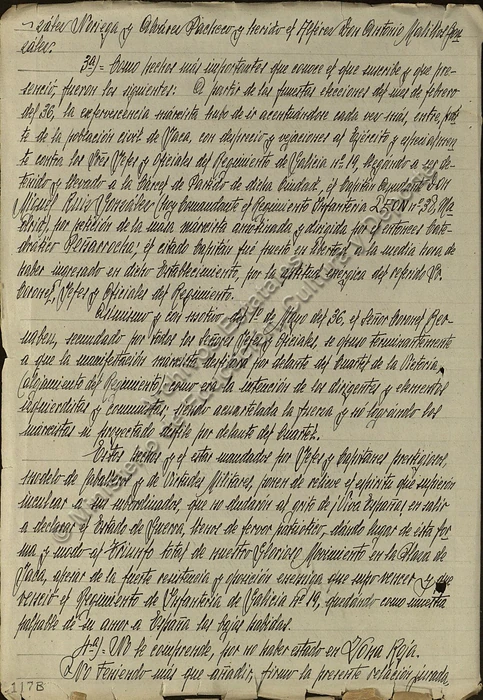 zález Noriega y Alvarez Pacheco y herido el Alférez Don Antonio Madillos Gon-
zález.
3ª)= Como hechos más importantes que conoce el que suscribe y que pre-
senció, fueron los siguientes: A partir de las funestas elecciones del mes de febrero
del 36, la efervescencia marxista hubo de ir acentuándose cada vez más, entre par-
te de la población civil de Jaca, con desprecio y vejaciones al Ejército y especialmen-
te contra los Sres Jefes y Oficiales del Regimiento de Galicia nº 19, llegando a ser de-
tenido y llevado a la Cárcel de Partido de dicha Ciudad, el Capitán Ayudante Don
Miguel Ruiz González (hoy Comandante el Regimiento Infantería LEON nº 38, Ma-
drid), por petición de la masa marxista amotinada y dirigida por el entonces Cate-
drático PENARROCHA; el citado Capitán fué puesto en libertad a la media hora de
haber ingresado en dicho Establecimiento, por la actitud enérgica del referido Sr.
Coronel, Jefes y Oficiales del Regimiento.
Asimismo y con motivo del 1º de Mayo del 36, el Señor Coronel Ber-
nabeu, secundado por todos los Señores Jefes y Oficiales, se opuso terminantemente
a que la manifestación marxista desfilara por delante del Cuartel de la Victoria,
(alojamiento del Regimiento), como era la intención de los dirigentes y elementos
izquierditas y comunistas; siendo acuartelada la fuerza y no logrando los
marxistas su proyectado desfile por delante del Cuartel.
Estos hechos y el estar mandados por Jefes y Capitanes prestigiosos,
modelo de Caballeros y de Virtudes Militares, ponen de relieve el espíritu que supieron
inculcar a sus subordinados, que no dudaron al grito de ¡Viva España!, en salir
a declarar el Estado de Guerra, llenos de fervor patriótico, dando lugar de esta for-
ma y modo al triunfo total de nuestro Glorioso Movimiento en la Plaza de
Jaca, apesar de la fuerte resistencia y oposición enemiga que supo vencer y que
venció el Regimiento de Infantería de Galicia nº 19, quedando como muestra
palpable de su amor a España las bajas habidas.
4ª)= No le comprende, por no haber estado en Zona Roja.
Y No teniendo más que añadir, firmo la presente relación jurada,
117B
© Ministerio de Educación, Cultura y Deporte
Archivos Estatales